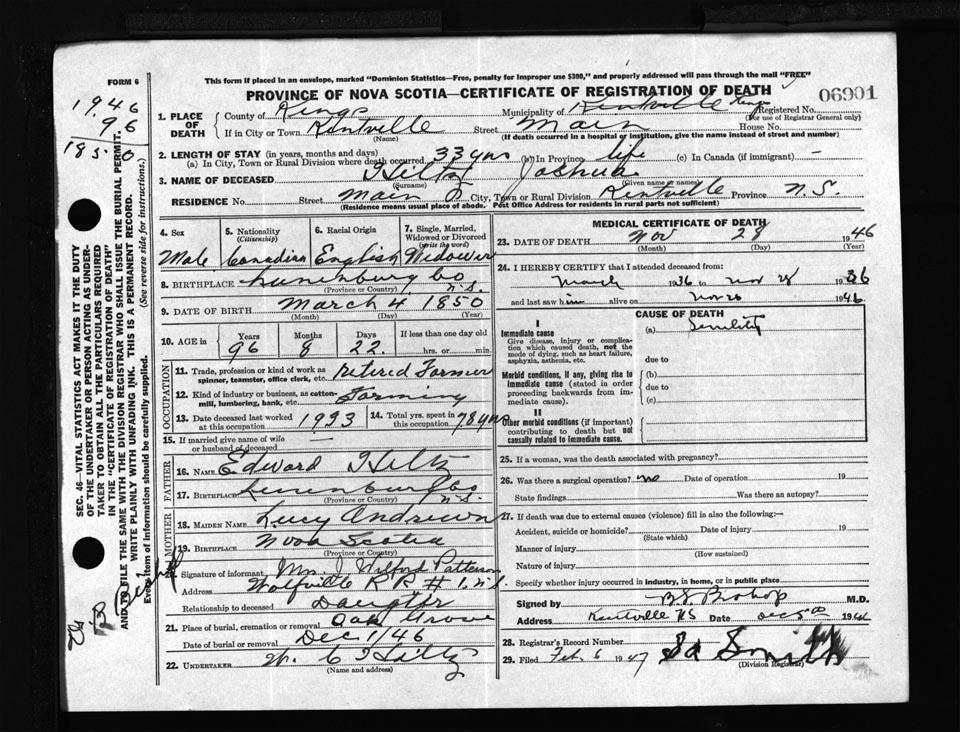 FORM 6
This form if placed in an envelope, marked "Dominion Statistics—Free, penalty for improper use $300," and properly addressed will pass through the mail "FREE"
PROVINCE OF NOVA SCOTIA—CERTIFICATE OF REGISTRATION OF DEATH
06901
1946
96
1850
1. PLACE OF DEATH
County of Kings
Municipality of Kentville Kings Registered No.
(For use of Registrar General only)
If in City or Town Kentville Street Main House No.
(Name) (If death occurred in a hospital or institution, give the name instead of street and number)
2. LENGTH OF STAY (in years, months and days)
(a) In City, Town or Rural Division where death occurred 33 yrs (b) In Province life (c) In Canada (if immigrant) —
3. NAME OF DECEASED Hiltz Joshua
(Surname) (Given name or names)
RESIDENCE No. Street Main City, Town or Rural Division Kentville Province N.S.
(Residence means usual place of abode. Post Office Address for residents in rural parts not sufficient)
4. Sex Male
5. Nationality (Citizenship) Canadian
6. Racial Origin English
7. Single, Married, Widowed or Divorced (write the word) Widower
8. BIRTHPLACE Lunenburg Co N.S.
(Province or Country)
9. DATE OF BIRTH March 4 1850
(Month) (Day) (Year)
10. AGE in Years Months Days If less than one day old
96 8 22 hrs. or min.
OCCUPATION
11. Trade, profession or kind of work as spinner, teamster, office clerk, etc. Retired Farmer
12. Kind of industry or business, as cotton-mill, lumbering, bank, etc. Farming
13. Date deceased last worked at this occupation 1933
14. Total yrs. spent in this occupation 78 yrs
15. If married give name of wife or husband of deceased —
FATHER
16. NAME Edward Hiltz
17. BIRTHPLACE Lunenburg Co N.S.
(Province or Country)
MOTHER
18. MAIDEN NAME Lucy Andrews
19. BIRTHPLACE Nova Scotia
(Province or Country)
Signature of informant Mrs. J. Wilford Patterson
Address Wolfville R R # 1. N.S.
Relationship to deceased Daughter
21. Place of burial, cremation or removal Oak Grove
Date of burial or removal Dec 1/46
22. UNDERTAKER W. C Hiltz
(Name and address)
MEDICAL CERTIFICATE OF DEATH
23. DATE OF DEATH Nov 28 1946
(Month) (Day) (Year)
24. I HEREBY CERTIFY that I attended deceased from:
March 1936 to Nov 28
and last saw him alive on Nov 26 1946
CAUSE OF DEATH
I
Immediate cause (a) Senility
Give disease, injury or complication which caused death, not the mode of dying, such as heart failure, asphyxia, asthenia, etc.
due to
Morbid conditions, if any, giving rise to immediate cause (stated in order proceeding backwards from immediate cause).
(b)
due to
(c)
II
Other morbid conditions (if important) contributing to death but not causally related to immediate cause.
25. If a woman, was the death associated with pregnancy?
26. Was there a surgical operation? no Date of operation 19
State findings Was there an autopsy?
27. If death was due to external causes (violence) fill in also the following:—
Accident, suicide or homicide? Date of injury 19
(State which)
Manner of injury
(How sustained)
Nature of injury
Specify whether injury occurred in industry, in home, or in public place
Signed by B S Bishop M.D.
Address Kentville NS Date Dec 5th 1946
28. Registrar's Record Number
29. Filed Feb 6 1947 Smith
(Division Registrar)
SEC. 46—VITAL STATISTICS ACT MAKES IT THE DUTY
OF THE UNDERTAKER OR PERSON ACTING AS UNDER-
TAKER TO OBTAIN ALL THE PARTICULARS REQUIRED
IN THE "CERTIFICATE OF REGISTRATION OF DEATH"
AND TO FILE THE SAME WITH THE DIVISION REGISTRAR WHO SHALL ISSUE THE BURIAL PERMIT.
WRITE PLAINLY WITH UNFADING INK. THIS IS A PERMANENT RECORD.
Every item of information should be carefully supplied. (See reverse side for instructions.)